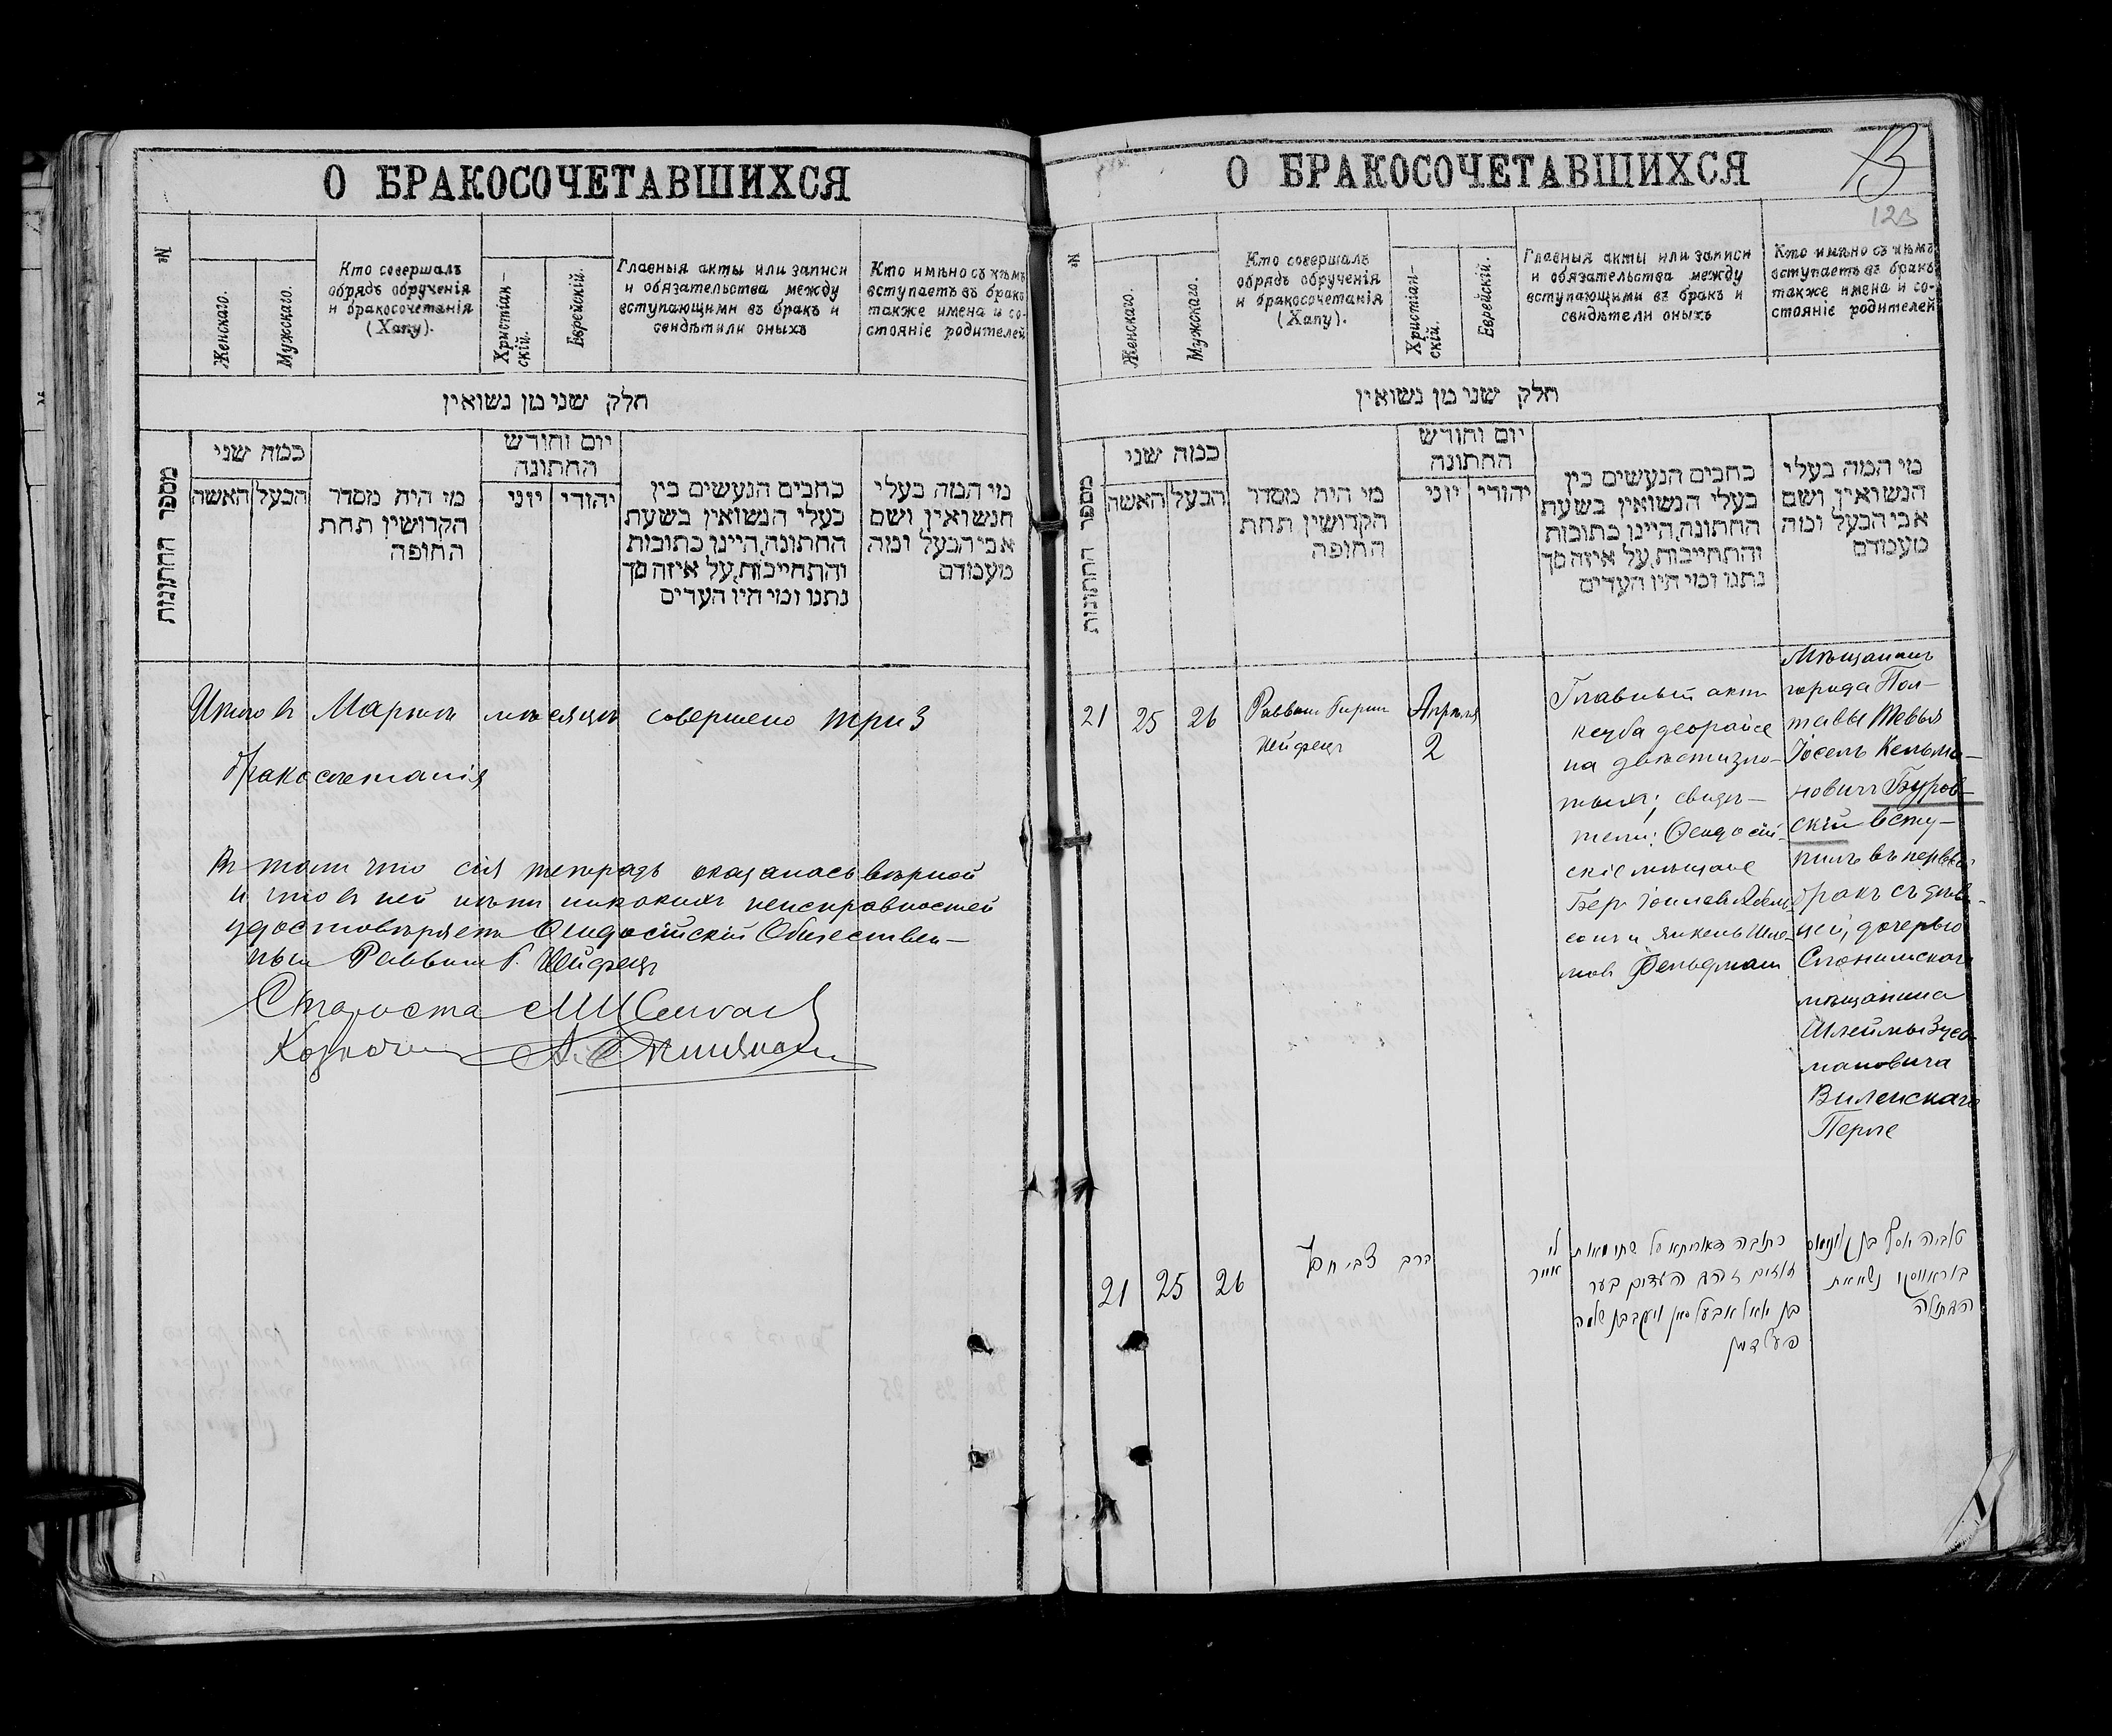 О БРАКОСОЧЕТАВШИХСЯ
№
Женскаго.
Мужскаго.
Кто совершалъ
обрядъ обрученія
и бракосочетанія
(Хапу).
Христіан-
скій.
Еврейскій.
Главныя акты или записи
и обязательства между
вступающими въ бракъ и
свидѣтили оныхъ
Кто имѣно съ кѣмъ
вступаетъ въ бракъ
также имена и со-
стояніе родителей
חלק שני מן נשואין
מספר החתונות
כמה שני
האשה
הבעל
מי היה מסדר
הקדושין תחת
החופה
יום וחודש
החתונה
יוני
יהודי
כתבים הנעשים בין
בעלי הנשואין בשעת
החתונה, היינו כתובות
והתחייבות, על איזה סך
נתנו ומי היו העדים
מי המה בעלי
הנשואין ושם
אבי הבעל ומה
מעמדם
Итого въ Мартѣ мѣсяцѣ совершено три 3
бракосочетанія
Въ томъ что сія тетрадь оказалась вѣрной
и что въ ней нѣтъ никакихъ неисправностей
удостовѣряетъ Ѳеодосійскій Обществен-
ный Раввинъ Г. Хейфецъ
Староста
Казначей
О БРАКОСОЧЕТАВШИХСЯ
13
123
№
Женскаго.
Мужскаго.
Кто совершалъ
обрядъ обрученія
и бракосочетанія
(Хапу).
Христіан-
скій.
Еврейскій.
Главныя акты или записи
и обязательства между
вступающими въ бракъ и
свидѣтели оныхъ
Кто имѣно съ кѣмъ
вступаетъ въ бракъ
также имена и со-
стояніе родителей
חלק שני מן נשואין
מספר החתונות
כמה שני
האשה
הבעל
מי היה מסדר
הקדושין תחת
החופה
יום וחודש
החתונה
יוני
יהודי
כתבים הנעשים בין
בעלי הנשואין בשעת
החתונה, היינו כתובות
והתחייבות, על איזה סך
נתנו ומי היו העדים
מי המה בעלי
הנשואין ושם
אבי הבעל ומה
מעמדם
21 25 26
Раввинъ Гирш
Хейфецъ
Апрѣля
2
Главный актъ
кеуба деорайсе
на двѣсти зло-
тыхъ; свидѣ-
тели: Ѳеодосій-
скіе мѣщане
Бер Іоилев Абель-
сонъ и Янкель Шле-
мов Фельдманъ
Мѣщанинъ
города Пол-
тавы Тевья
Іосель Кельма-
новичъ Буров-
скій всту-
пилъ въ первый
бракъ съ дѣви-
цей, дочерью
Слонимскаго
мѣщанина
Шлеймы Зус-
мановича
Виленскаго
Перле
21 25 26
הרב צבי חפץ
אייר
כתובה דאורייתא על שתי מאות
זהובים העדים בער
בן יואל אבעלסאן ויעקב בן שלמה
פעלדמן
טוביה יוסף בן קלונימוס
בוראווסקי נשא את
הבתולה